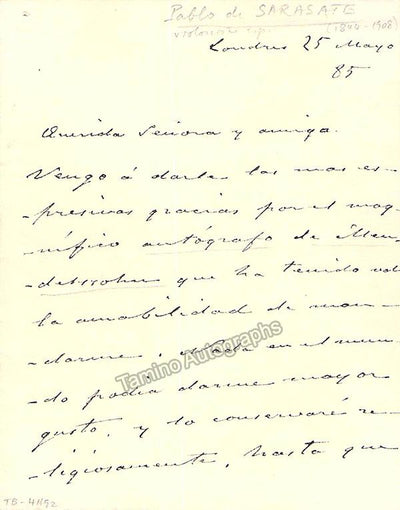 Pablo de SARASATE
violoniste esp. (1844-1908)
Londres 25 Mayo
85
Querida Señora y amiga.
Vengo á darle las mas es-
-presivas gracias por el mag-
-nífico autógrafo de Men-
-delssohn que ha tenido vd
la amabilidad de man-
-darme. Nada en el mun-
-do podia darme mayor
gusto, y lo conservaré re-
-ligiosamente, hasta que
Tamino Autographs